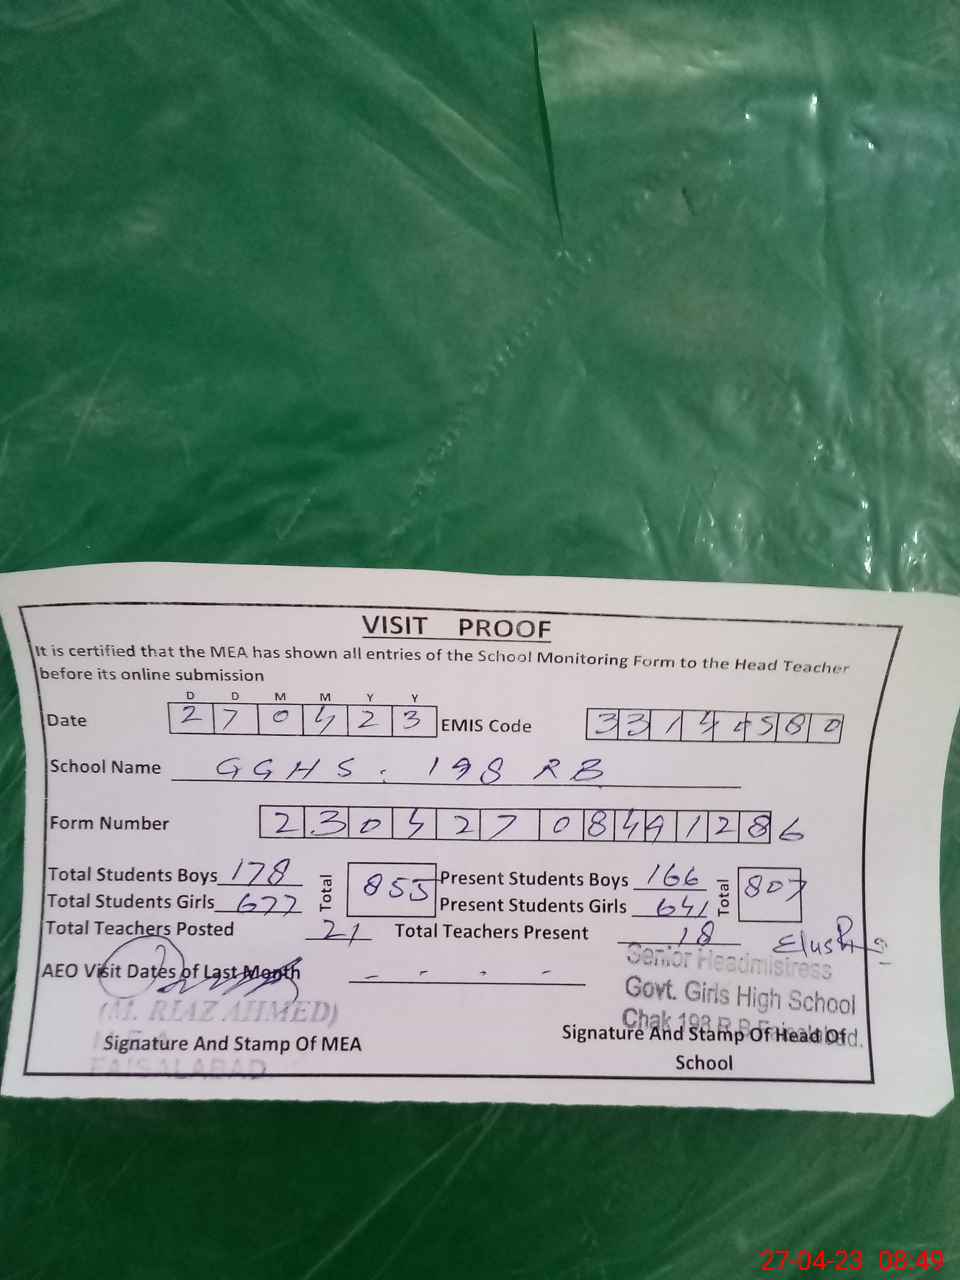 VISIT PROOF
It is certified that the MEA has shown all entries of the School Monitoring Form to the Head Teacher
before its online submission
D D M M Y Y
Date 2 7 0 4 2 3 EMIS Code 3 3 1 4 0 5 8 0
School Name GGHS. 198 RB
Form Number 2 3 0 4 2 7 0 8 4 9 1 2 8 6
Total Students Boys 178 Total 855 Present Students Boys 166 Total 807
Total Students Girls 677 Present Students Girls 641
Total Teachers Posted 21 Total Teachers Present 18
AEO Visit Dates of Last Month - - - -
Senior Headmistress
Govt. Girls High School
Chak 198 R.B Faisalabad.
(M. RIAZ AHMED)
M.E.A
FAISALABAD.
Signature And Stamp Of MEA
Signature And Stamp Of Head Of
School
27-04-23 08:49